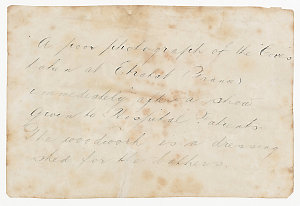 A poor photograph of the
taken at Etretat France
immediately after a show
given to Hospital Patients.
The woodwork is a dressing
shed for the bathers.